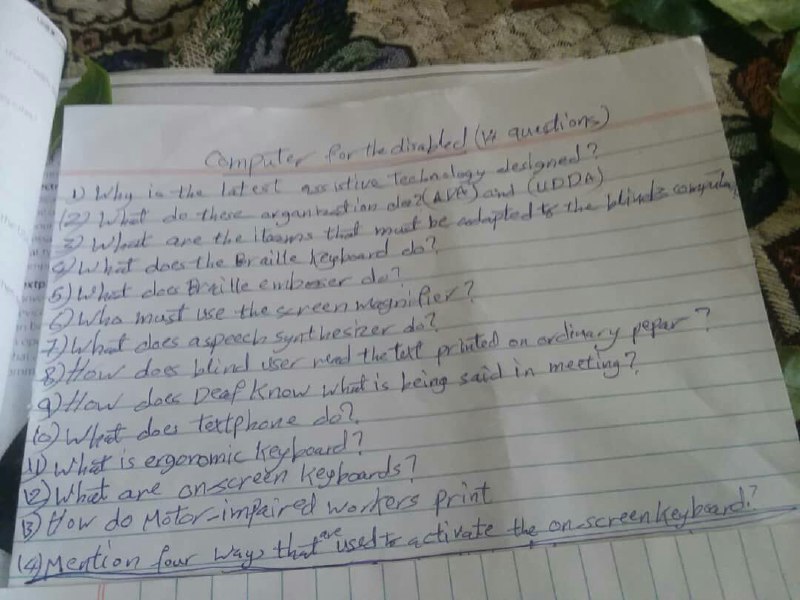 Computer for the disabled (14 questions)
1) Why is the latest assistive technology designed?
(2) What do these organization do? (ADA) and (UDDA)
3) What are the iteams that must be adapted to the blind's
4) What does the Braille Keyboard do?
5) What does Braille embosser do?
6) Who must use the screen magnifier?
7) What does a speech synthesizer do?
8) How does blind user read the text printed on ordinary pepar?
9) How does Deaf Know what is being said in meeting?
10) What does textphone do?
11) What is ergonomic keyboard?
12) What are on-screen keyboards?
13) How do Motor-impaired workers print
14) Mention four ways that are used to activate the on-screen keyboard?